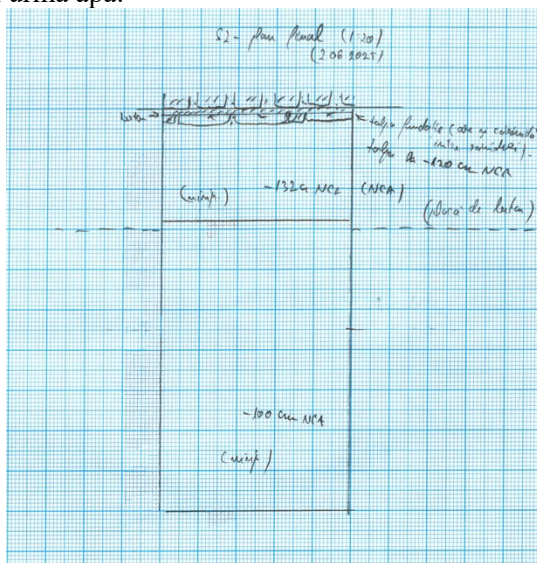 S2 - plan final (1:20)
(2 06 2025)
beton
talpa fundatie (care se continuă
talpa la -120 cm NCA
(nisip.)
-132 cm NCA
(NCA)
(placă de beton)
-100 cm NCA
(nisip)